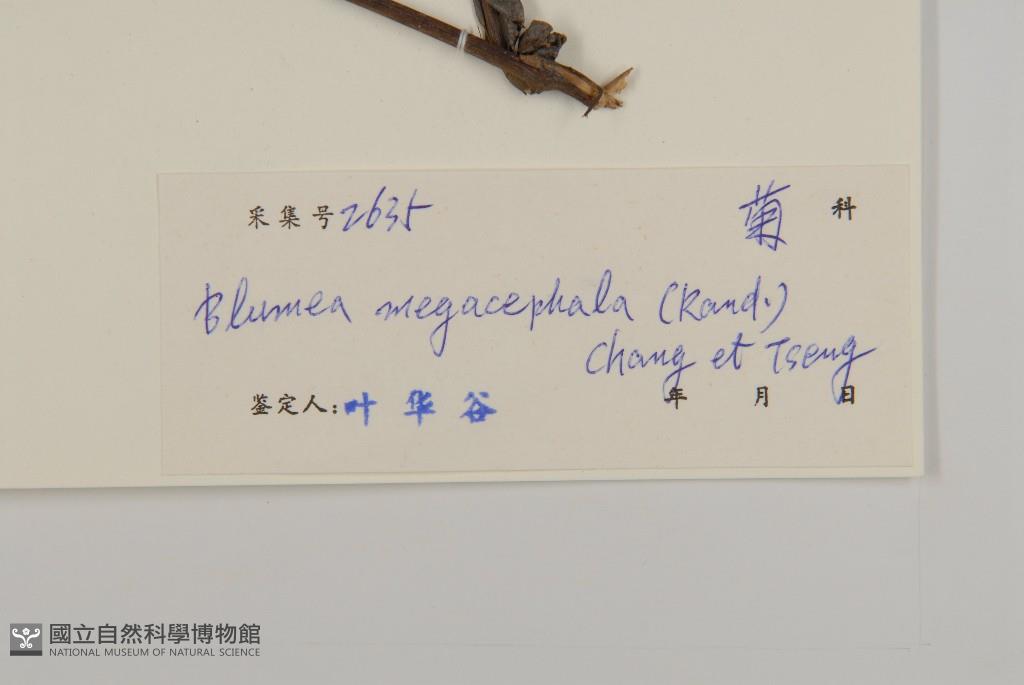 采集号 2635 菊 科
Blumea megacephala (Rand.)
Chang et Tseng
鉴定人: 叶华谷 年 月 日
國立自然科學博物館
NATIONAL MUSEUM OF NATURAL SCIENCE